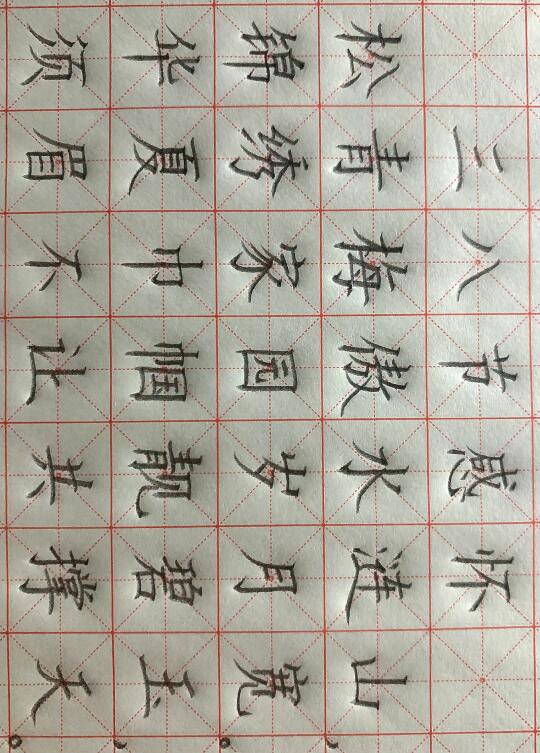 三八节感怀
松青梅傲水涟山，
绵绣家园岁月宽。
华夏巾帼靓碧玉，
须眉不让共撑天。